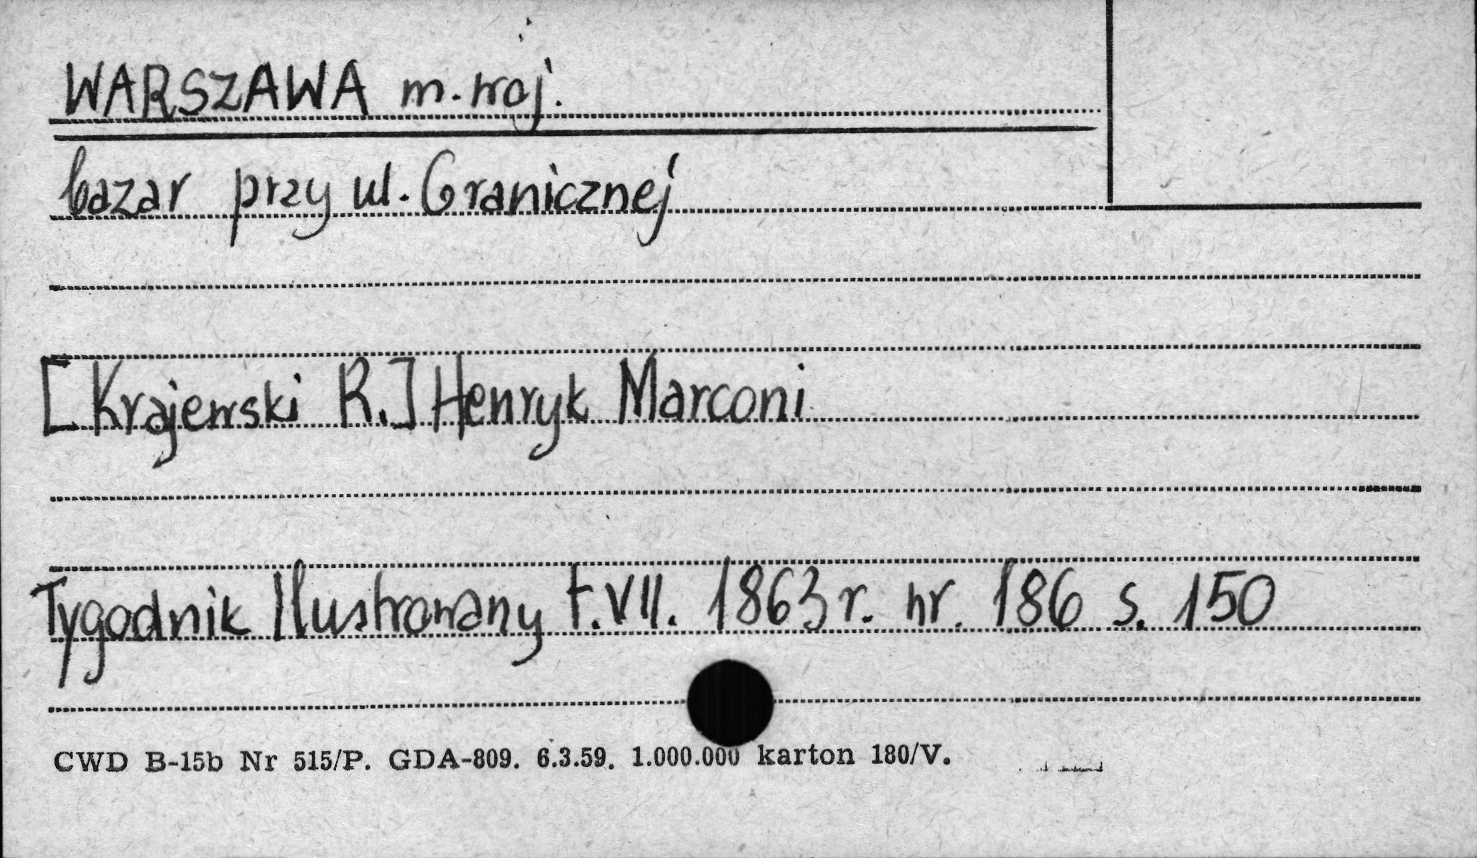 WARSZAWA m. woj.
bazar przy ul. Granicznej
[Krajewski R.] Henryk Marconi
Tygodnik Ilustrowany t. VII. 1863 r. nr. 186 s. 150
CWD B-15b Nr 515/P. GDA-809. 6.3.59. 1.000.000 karton 180/V.